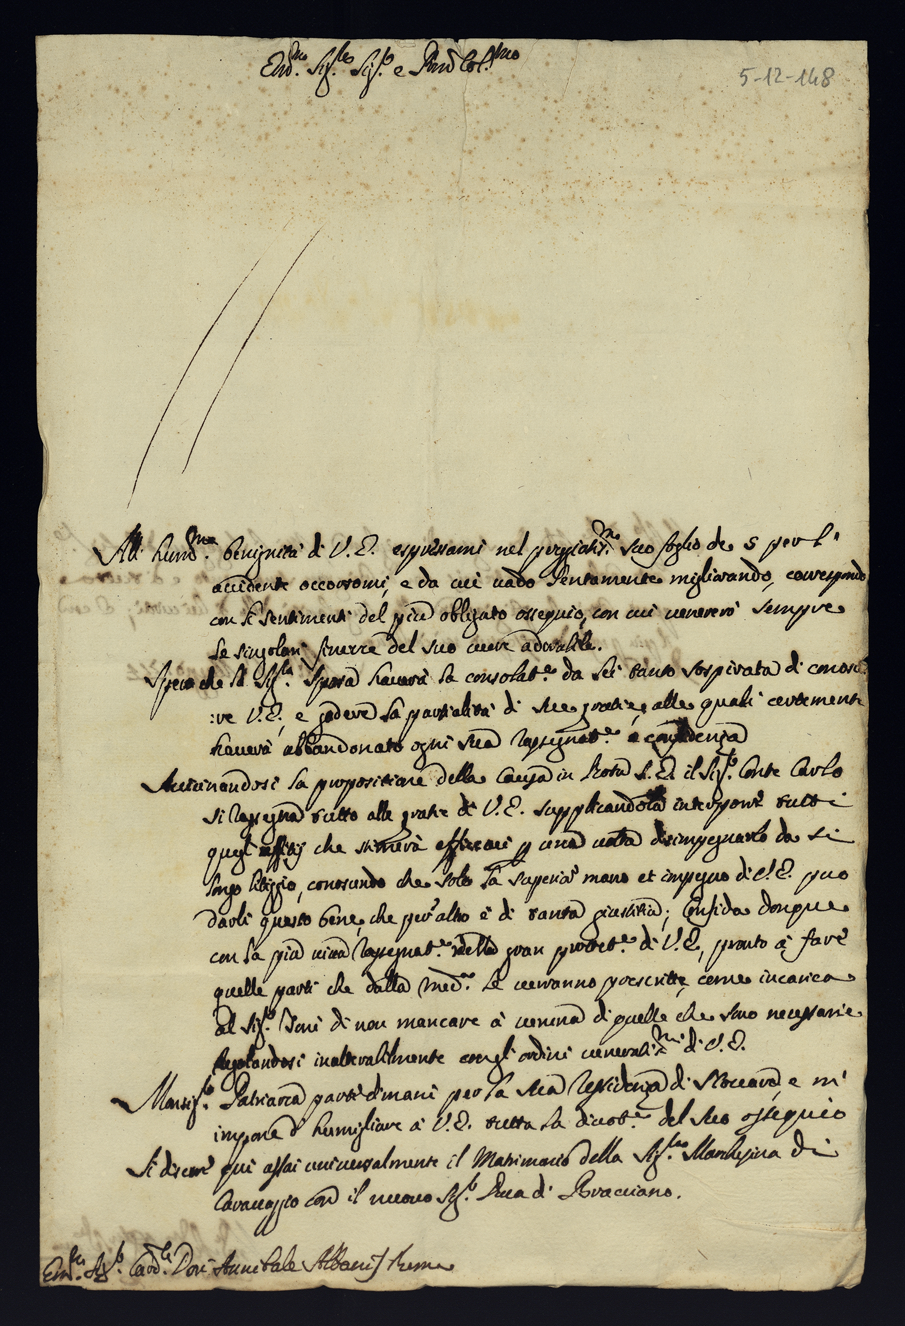 Em.mo Sig.re Sig.r e Pron Col.mo
5-12-148
All' hum.ma benignità di V. E. espressami nel pregiatis.mo suo foglio de 5 per l'
accidente occorsomi, e da cui vado lentamente migliorando, corrispondo
con li sentimenti del più obligato ossequio, con cui venererò sempre
le singolari finezze del suo cuore adorabile.
Spero che la Sig.ra Sposa haverà la consolat.e da lei tanto sospirata di conosce
:re V. E., e goderà la partialità di sue gratie, alle quali certamente
haverà abbandonato ogni sua rassegnat.e e confidenza
Avicinandosi la propositione della Causa in Rota S. E. il Sig.r Conte Carlo
si rassegna tutto alle gratie di V. E. supplicandola interporre tutti
quegl'uffitij che stimerà efficaci p una volta disimpegnarlo da sì
longo litiggio, conoscendo che solo la superior mano et impegno di V. E. può
darli questo bene, che per altro è di tanta giustitia; Confida donque
con la più viva rassegnat.e nella gran protet.e di V. E., pronto à fare
quelle parti che dalla med.a le verranno prescritte, come incarica
al Sig.r Toni di non mancare à veruna di quelle che sono necessarie
regolandosi inalterabilmente congli ordini venerati.mi di V. E.
Monsig.r Patriarca partì dimani per la sua residenza di e m'
impone d'humigliare à V. E. tutta la divot.e del suo ossequio
Si discorre quì assai universalmente il Matrimonio della Sig.ra Marchesina di
Caravaggio con il nuovo Sig.r Duca di Bracciano.
Em.mo Sig.r Card.le Don Annibale Albani / Roma